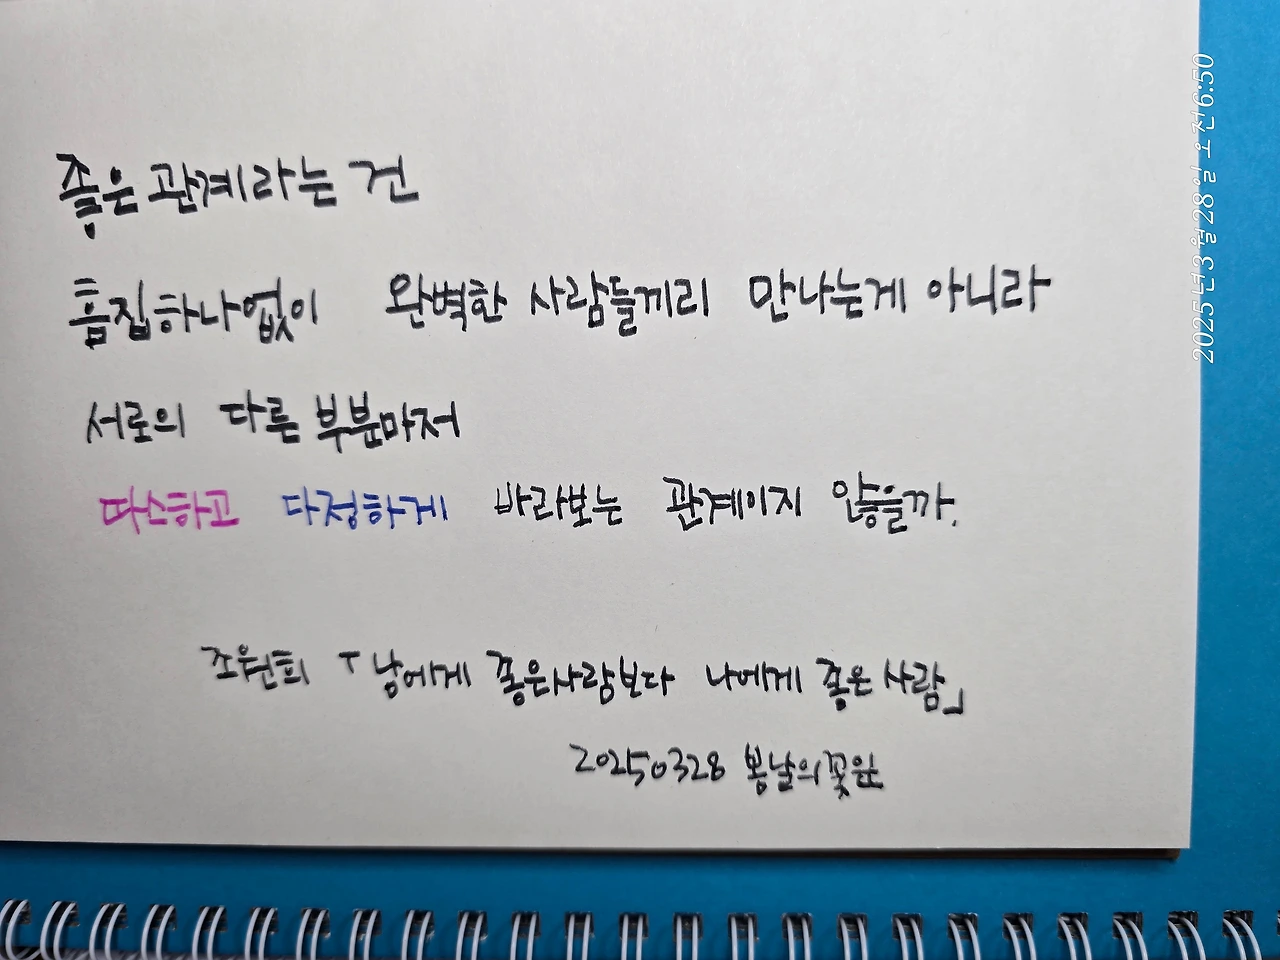 좋은 관계라는 건
흠집하나없이 완벽한 사람들끼리 만나는게 아니라
서로의 다른 부분마저
따스하고 다정하게 바라보는 관계이지 않을까.
조원희 「남에게 좋은사람보다 나에게 좋은 사람」
20250328 봄날의꽃잎
2025년3월28일 오전6:50